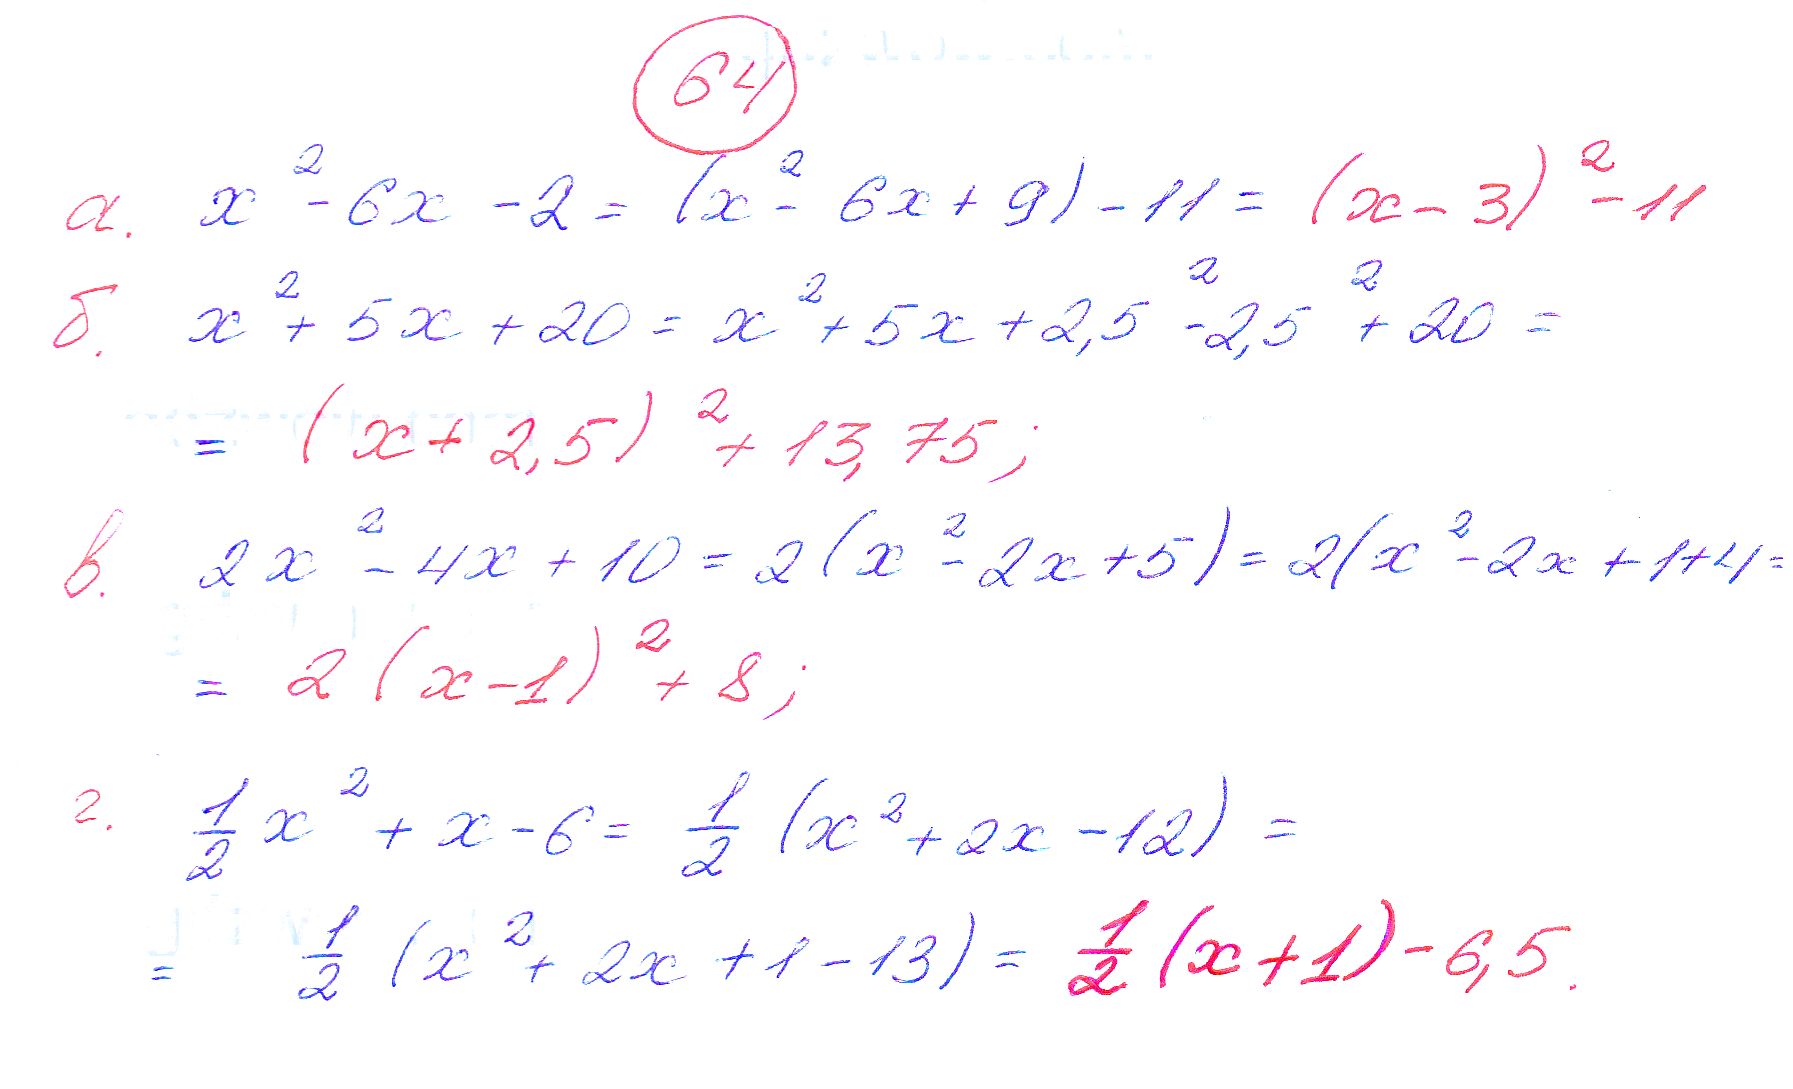 64
а. x² - 6x - 2 = (x² - 6x + 9) - 11 = (x - 3)² - 11
б. x² + 5x + 20 = x² + 5x + 2,5² - 2,5² + 20 =
= (x + 2,5)² + 13,75;
в. 2x² - 4x + 10 = 2(x² - 2x + 5) = 2(x² - 2x + 1 + 4 =
= 2(x - 1)² + 8;
г. 1/2 x² + x - 6 = 1/2 (x² + 2x - 12) =
= 1/2 (x² + 2x + 1 - 13) = 1/2 (x + 1) - 6,5.